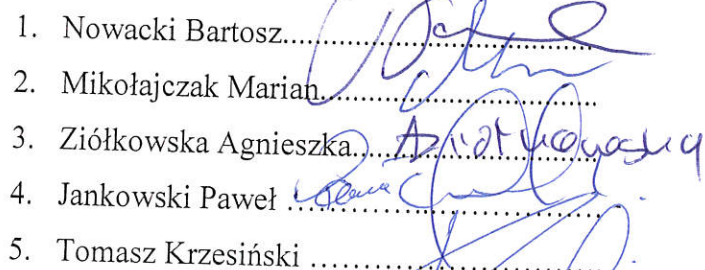 1. Nowacki Bartosz..............................................
2. Mikołajczak Marian........................................
3. Ziółkowska Agnieszka.... AZiółkowska
4. Jankowski Paweł ............................................
5. Tomasz Krzesiński ..........................................